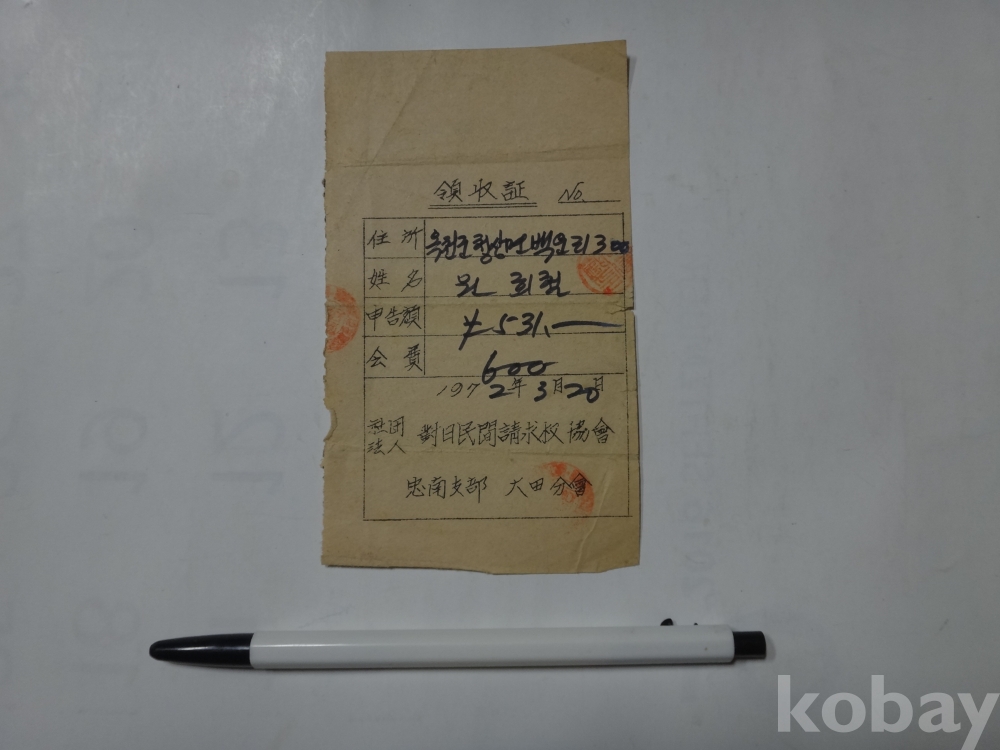 領収証 No.
住所 옥천군 청산면 백운리 300
姓名
申告額 ¥531.—
会費 600
1972年 3月 20日
社団法人 對日民間請求权協會
忠南支部 大田分會
kobay